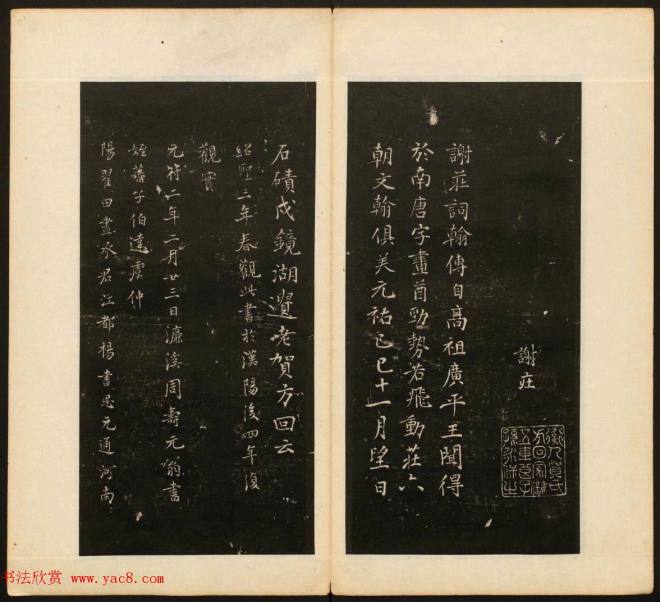 謝莊
謝莊詞翰傳自高祖廣平王聞得
於南唐字畫酋勁勢若飛動莊六
朝文翰俱美元祐己巳十一月望日
石磧戍鏡湖遺老賀方回云
紹聖三年春觀此書於漢陽後四年復
觀實
元符二年二月廿三日濂溪周壽元翁書
姪蕃子伯達虞仲
陽翟田晝承君江都楊書思元通河南
书法欣赏 www.yac8.com